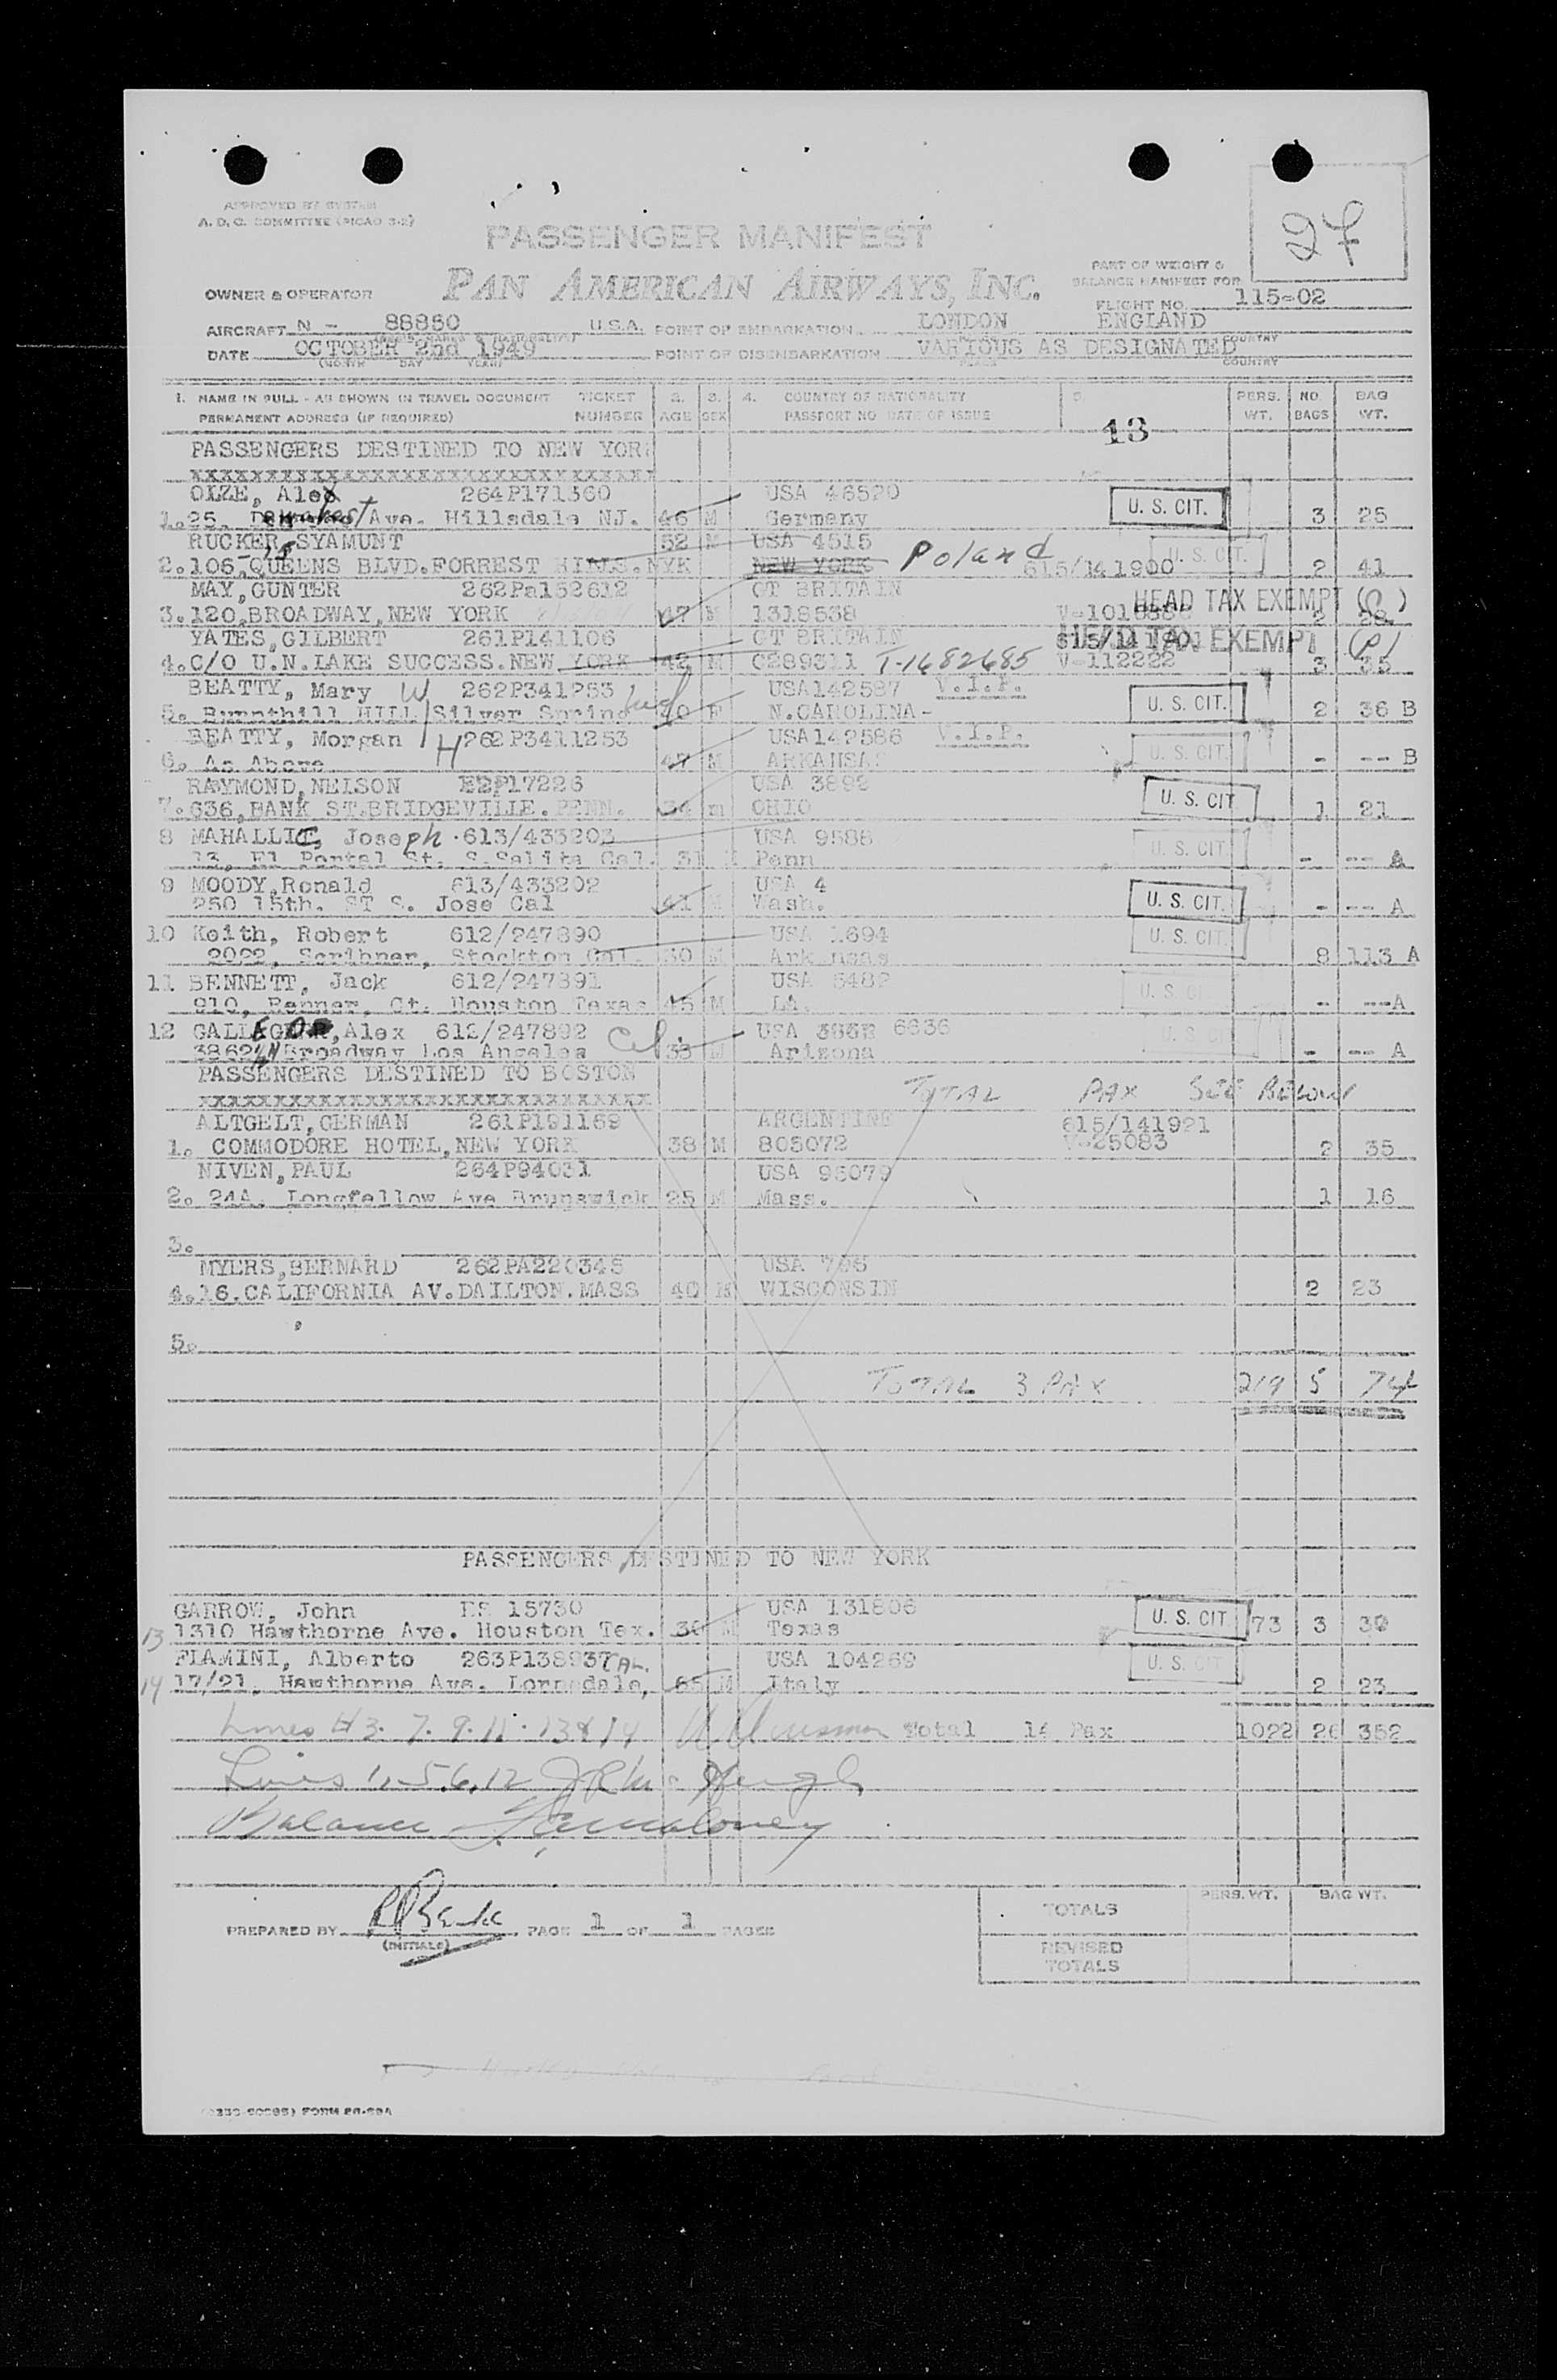 APPROVED BY SYSTEM
A. D. C. COMMITTEE (PICAO 3-2)
27
PASSENGER MANIFEST
PAN AMERICAN AIRWAYS, INC.
OWNER & OPERATOR
PART OF WEIGHT &
BALANCE MANIFEST FOR
FLIGHT NO. 115-02
AIRCRAFT N - 88850 U.S.A. POINT OF EMBARKATION LONDON ENGLAND
DATE OCTOBER 2nd 1949 POINT OF DISEMBARKATION VARIOUS AS DESIGNATED
(MONTH DAY YEAR) COUNTRY
1. NAME IN FULL - AS SHOWN IN TRAVEL DOCUMENT TICKET 2. 3. 4. COUNTRY OF NATIONALITY 5. PERS. NO. BAG
PERMANENT ADDRESS (IF REQUIRED) NUMBER AGE SEX PASSPORT NO. DATE OF ISSUE WT. BAGS WT.
13
PASSENGERS DESTINED TO NEW YORK
xxxxxxxxxxxxxxxxxxxxxxxxxxxxxx
OLZE, Alex 264P171360 USA 46520 U. S. CIT.
1. 25, Ave. Hillsdale NJ. 46 M Germany 3 25
RUCKER, SYAMUNT 52 M USA 4515
2. 106, QUEENS BLVD. FORREST HILLS. NYK NEW YORK Poland 615/141900 U. S. CIT. 2 41
MAY, GUNTER 262Pa152612 GT BRITAIN HEAD TAX EXEMPT
3. 120, BROADWAY, NEW YORK 47 M 1318538 2 28
YATES, GILBERT 261P141106 GT BRITAIN 615/141901 HEAD TAX EXEMPT (P)
4. C/O U.N. LAKE SUCCESS. NEW YORK 42 M C289311 T-1682685 V-112222 3 35
BEATTY, Mary W 262P341253 USA142587 V.I.P. U. S. CIT.
5. Burnthill HILL Silver Spring 40 F N.CAROLINA- 2 36 B
BEATTY, Morgan H 262P3411253 USA142586 V.I.P. U. S. CIT.
6. As Above 47 M ARKANSAS - -- B
RAYMOND, NELSON EEP17226 USA 3892 U. S. CIT
7. 636, BANK ST. BRIDGEVILLE. PENN. 34 m OHIO 1 21
8 MAHALLIC, Joseph 613/433203 USA 9588 U. S. CIT
13, El Portal St. S. Salita Cal. 31 Penn - -- A
9 MOODY, Ronald 613/433202 USA 4 U. S. CIT.
250 15th. ST S. Jose Cal 41 M Wash. - -- A
10 Keith, Robert 612/247890 USA 1694 U. S. CIT
2022, Scribner, Stockton Cal. 30 M Arkansas 8 113 A
11 BENNETT, Jack 612/247891 USA 5482 U. S. CI
910, Banner, Ct. Houston Texas 45 M LA. - --A
12 GALLEGO, Alex 612/247892 Cal. USA 6636 U. S. CI
3862 1/4 Broadway Los Angeles 38 M Arizona - -- A
PASSENGERS DESTINED TO BOSTON TOTAL PAX SEE BELOW
xxxxxxxxxxxxxxxxxxxxxxxxxxxxxx
ALTGELT, GERMAN 261P191169 ARGENTINE 615/141921
1. COMMODORE HOTEL, NEW YORK 38 M 805072 V-25083 2 35
NIVEN, PAUL 264P94031 USA 95079
2. 24A. Longfellow Ave Brunswick 25 M Mass. 1 16
3.
MYERS, BERNARD 262PA220345 USA 706
4. 16. CALIFORNIA AV. DAILTON. MASS 40 M WISCONSIN 2 23
5.
TOTAL 3 PAX 219 5 74
PASSENGERS DESTINED TO NEW YORK
GARROW, John ES 15730 USA 131806 U. S. CIT
13 1310 Hawthorne Ave. Houston Tex. 36 M Texas 73 3 30
FIAMINI, Alberto 263P138937 CAL. USA 104269 U. S. CIT
14 17/21, Hawthorne Ave. Lorndale, 65 M Italy 2 23
Lines #3. 7. 9. 11. 13 & 14 Total 14 Pax 1022 26 352
Lines 1, 5, 6, 12
Balance
PREPARED BY PAGE 1 OF 1 PAGES
(INITIALS)
PERS. WT. BAG WT.
TOTALS
REVISED
TOTALS